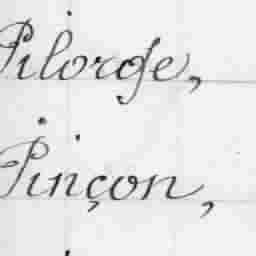 Pilorge,
Pinçon,